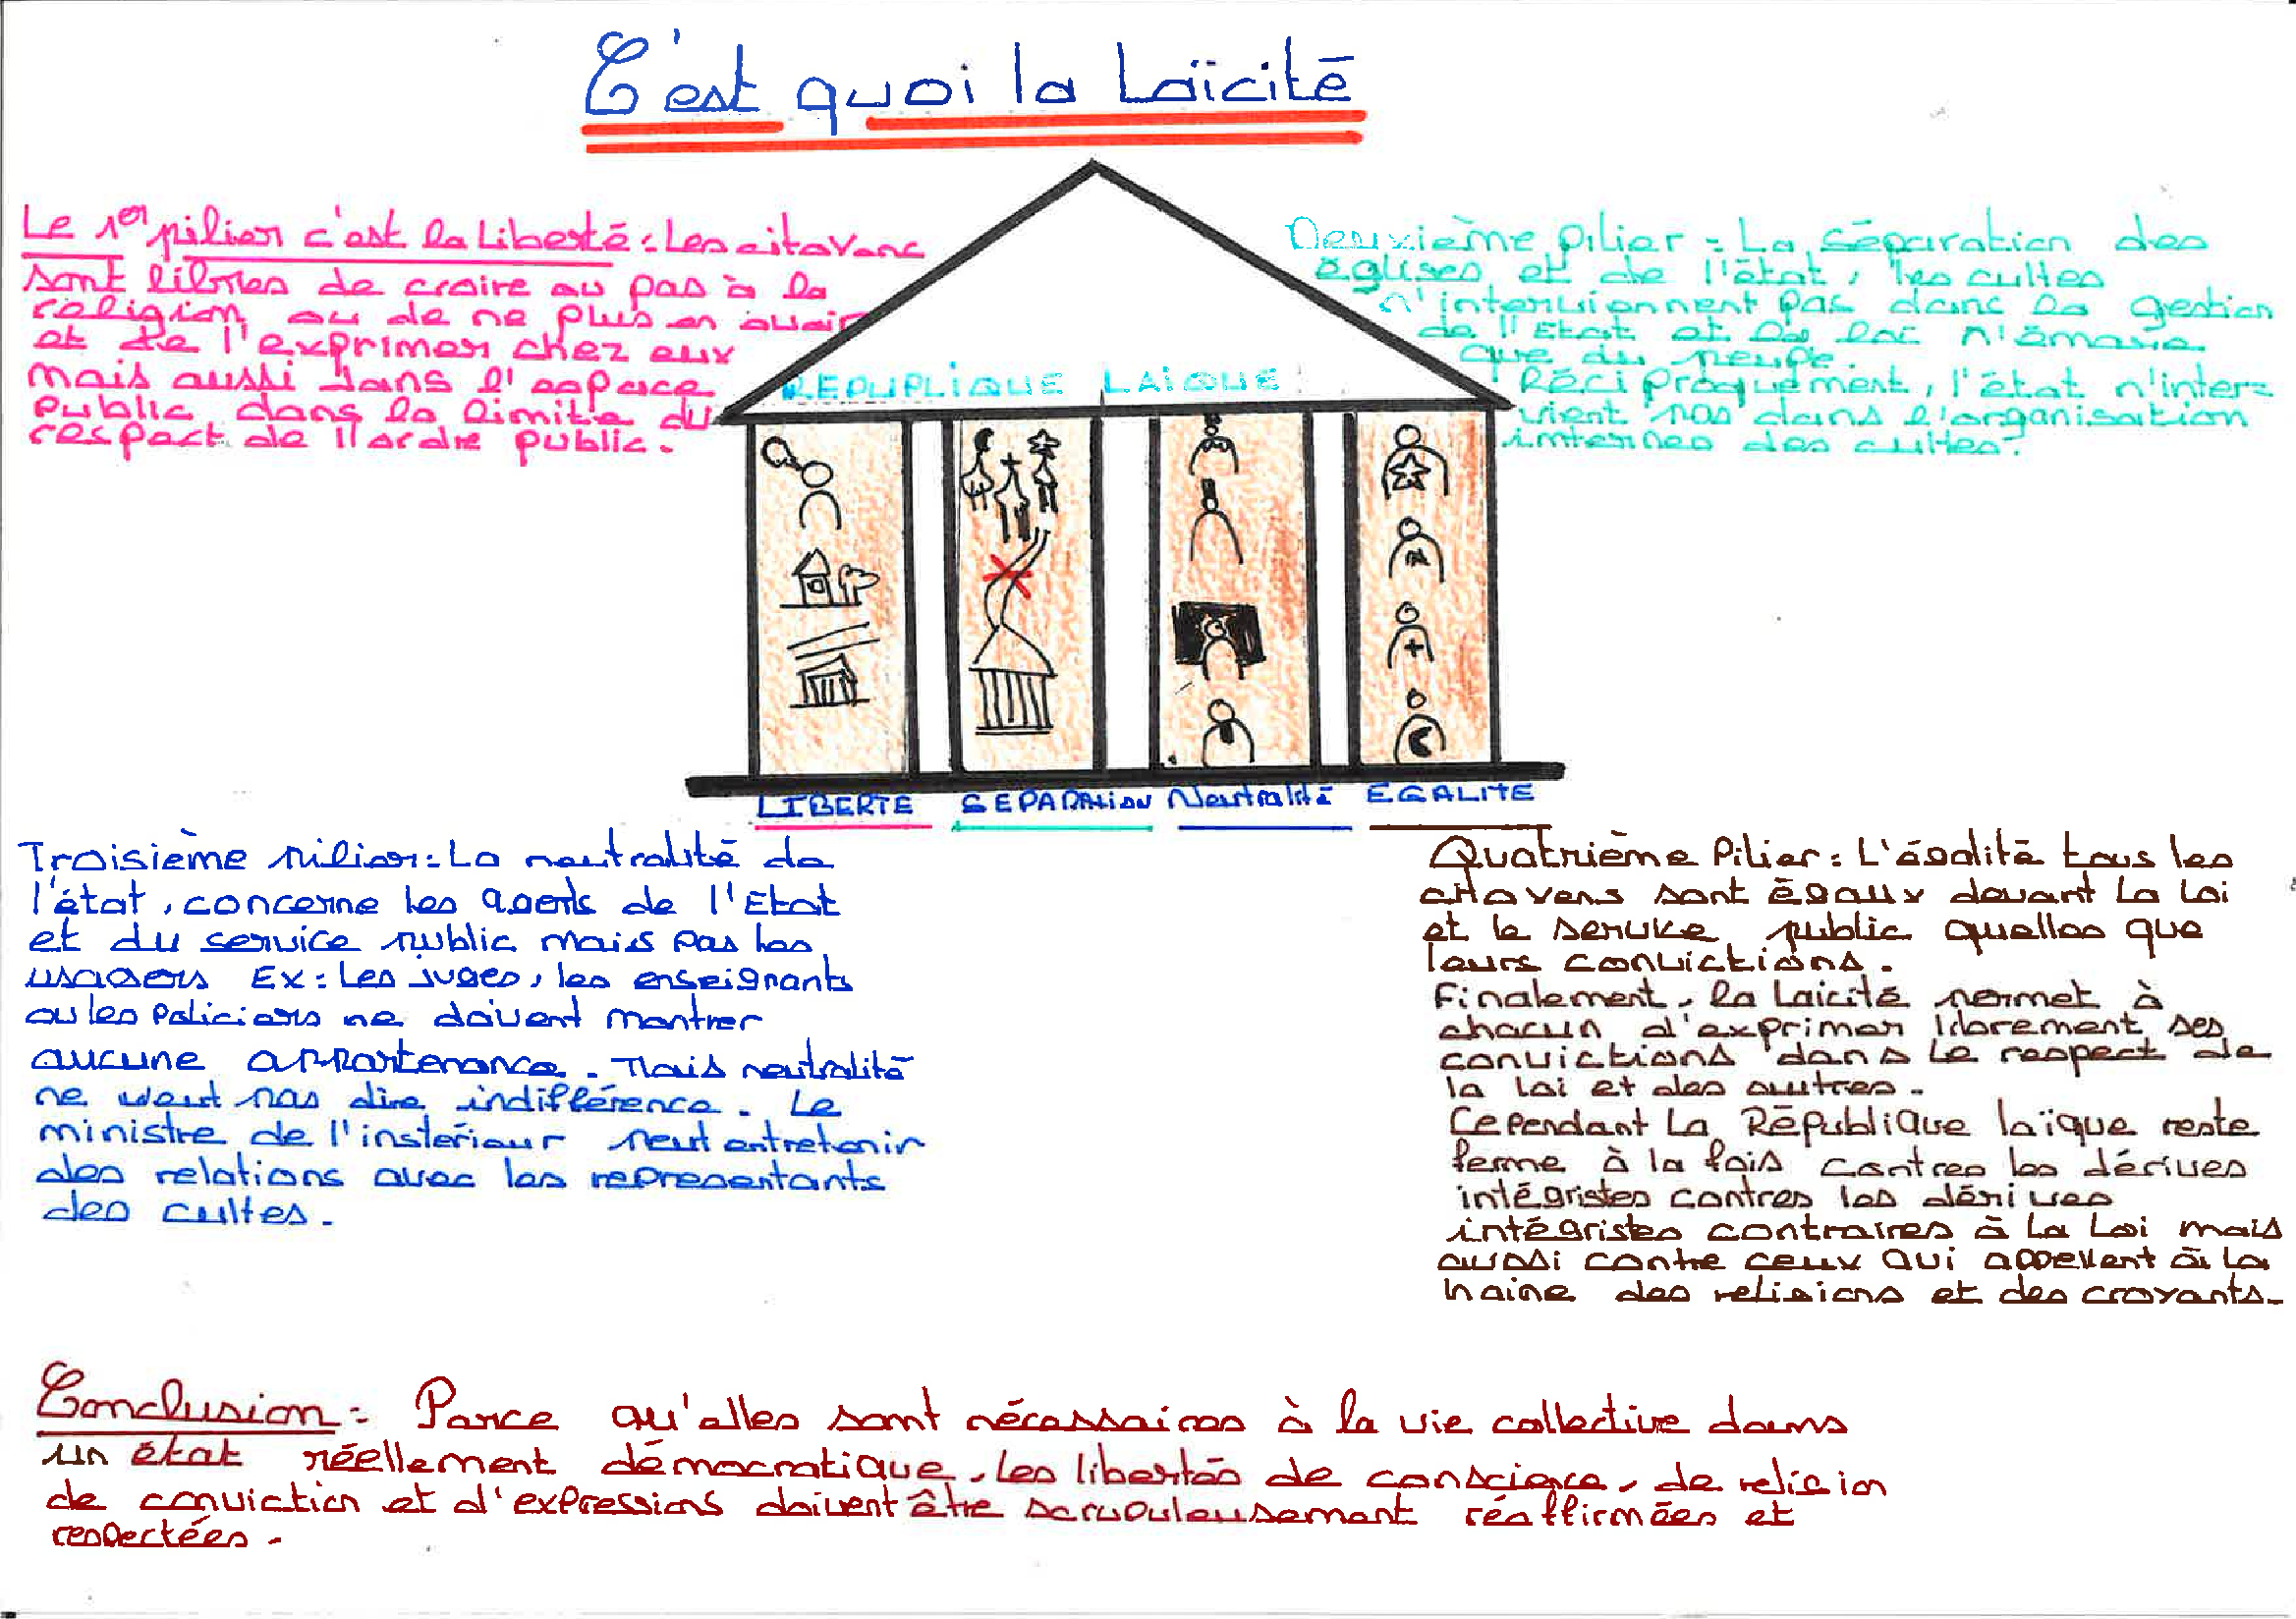 C'est quoi la Laïcité
Le 1er pilier c'est la Liberté : Les citoyens
sont libres de croire ou pas à la
religion ou de ne plus en avoir
et de l'exprimer chez eux
mais aussi dans l'espace
public dans la limite du
respect de l'ordre public.
Deuxième pilier : La séparation des
églises et de l'état, les cultes
n'interviennent pas dans la gestion
de l'Etat et la loi n'émane
que du peuple.
Réciproquement, l'état n'inter-
vient pas dans l'organisation
internes des cultes.
REPUPLIQUE LAIQUE
LIBERTE SEPARATION Neutralité EGALITE
Troisième pilier : La neutralité de
l'état, concerne les agents de l'Etat
et du service public mais pas les
usagers Ex : Les juges, les enseignants
ou les policiers ne doivent montrer
aucune appartenance. Mais neutralité
ne veut pas dire indifférence. Le
ministre de l'instérieur peut entretenir
des relations avec les representants
des cultes.
Quatrième Pilier : L'égalité tous les
citoyens sont égaux devant la loi
et le service public quelles que
leurs convictions.
Finalement, la laicité permet à
chacun d'exprimer librement ses
convictions dans le respect de
la loi et des autres.
Cependant La République laïque reste
ferme à la fois contres les dérives
intégristes contres les dérives
intégristes contraires à la loi mais
aussi contre ceux qui appellent à la
haine des religions et des croyants.
Conclusion : Parce qu'elles sont nécessaires à la vie collective dans
un état réellement démocratique, les libertés de conscience, de religion
de conviction et d'expressions doivent être scrupuleusement réaffirmées et
respectées.